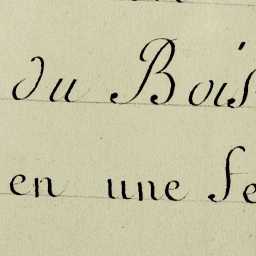 du Bois
en une Se